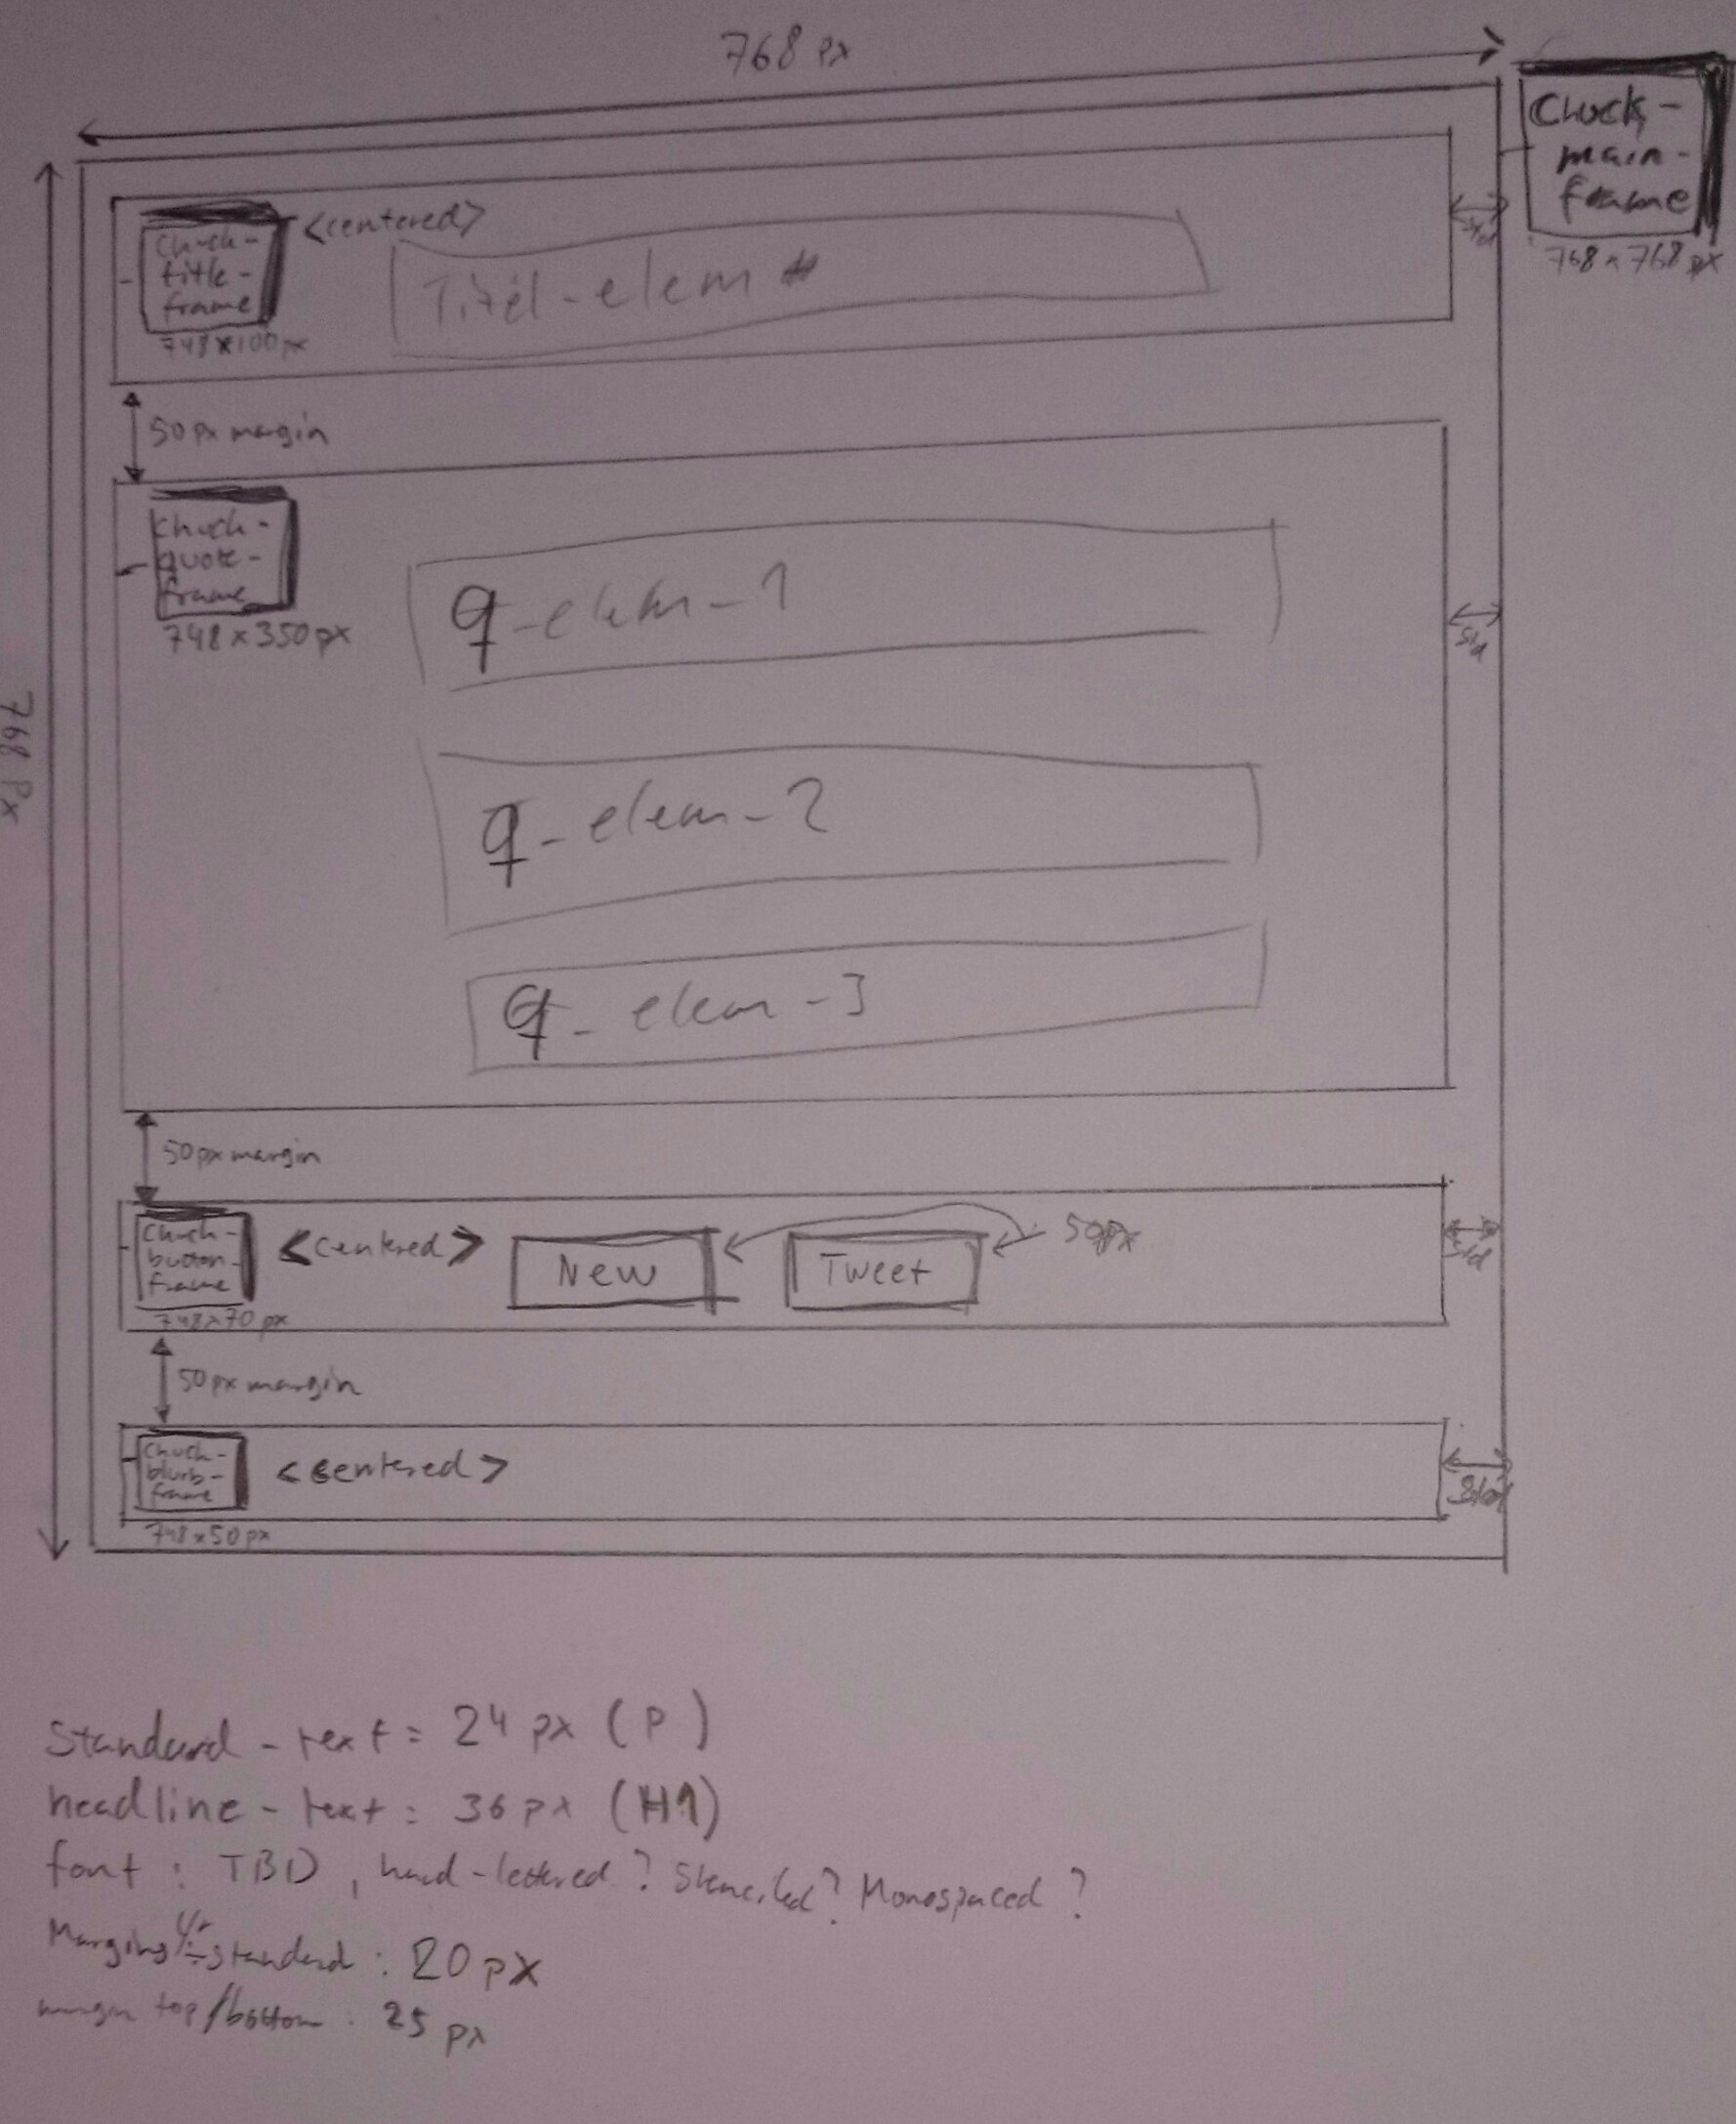 768 px
Chuck-
main-
frame
768 x 768 px
Chuck-
title-
frame
748x100px
<centered>
Titel-elem
50 px margin
768 Px
Chuck-
quote-
frame
748 x 350 px
q-elem-1
q-elem-2
q-elem-3
50 px margin
Chuck-
button-
frame
748x70 px
<centered>
New
Tweet
50px
50 px margin
Chuck-
blurb-
frame
748x50px
<centered>
Standard-text: 24 px (P)
headline-text: 36 px (H1)
font: TBD, hand-lettered? Stenciled? Monospaced?
Margins standard: 20 px
margin top/bottom: 25 px